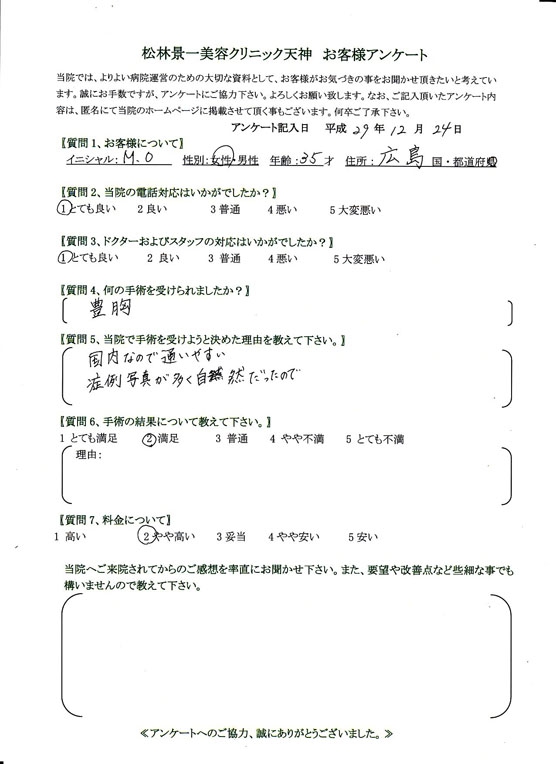 松林景一美容クリニック天神　お客様アンケート
当院では、よりよい病院運営のための大切な資料として、お客様がお気づきの事をお聞かせ頂きたいと考えてい
ます。誠にお手数ですが、アンケートにご協力下さい。よろしくお願い致します。なお、ご記入頂いたアンケート内
容は、匿名にて当院のホームページに掲載させて頂く事もございます。何卒ご了承下さい。
アンケート記入日　平成 29 年 12 月 24 日
【質問1、お客様について】
イニシャル: M.O　性別:女性・男性　年齢:35才　住所:広島 国・都道府県
【質問2、当院の電話対応はいかがでしたか?】
1とても良い　2良い　3普通　4悪い　5大変悪い
【質問3、ドクターおよびスタッフの対応はいかがでしたか?】
1とても良い　2 良い　3 普通　4悪い　5大変悪い
【質問4、何の手術を受けられましたか?】
豊胸
【質問5、当院で手術を受けようと決めた理由を教えて下さい。】
国内なので通いやすい
症例写真が多く自然だったので
【質問6、手術の結果について教えて下さい。】
1 とても満足　2満足　3 普通　4 やや不満　5 とても不満
理由:
【質問7、料金について】
1 高い　2やや高い　3妥当　4やや安い　5安い
当院へご来院されてからのご感想を率直にお聞かせ下さい。また、要望や改善点など些細な事でも
構いませんので教えて下さい。
≪アンケートへのご協力、誠にありがとうございました。≫